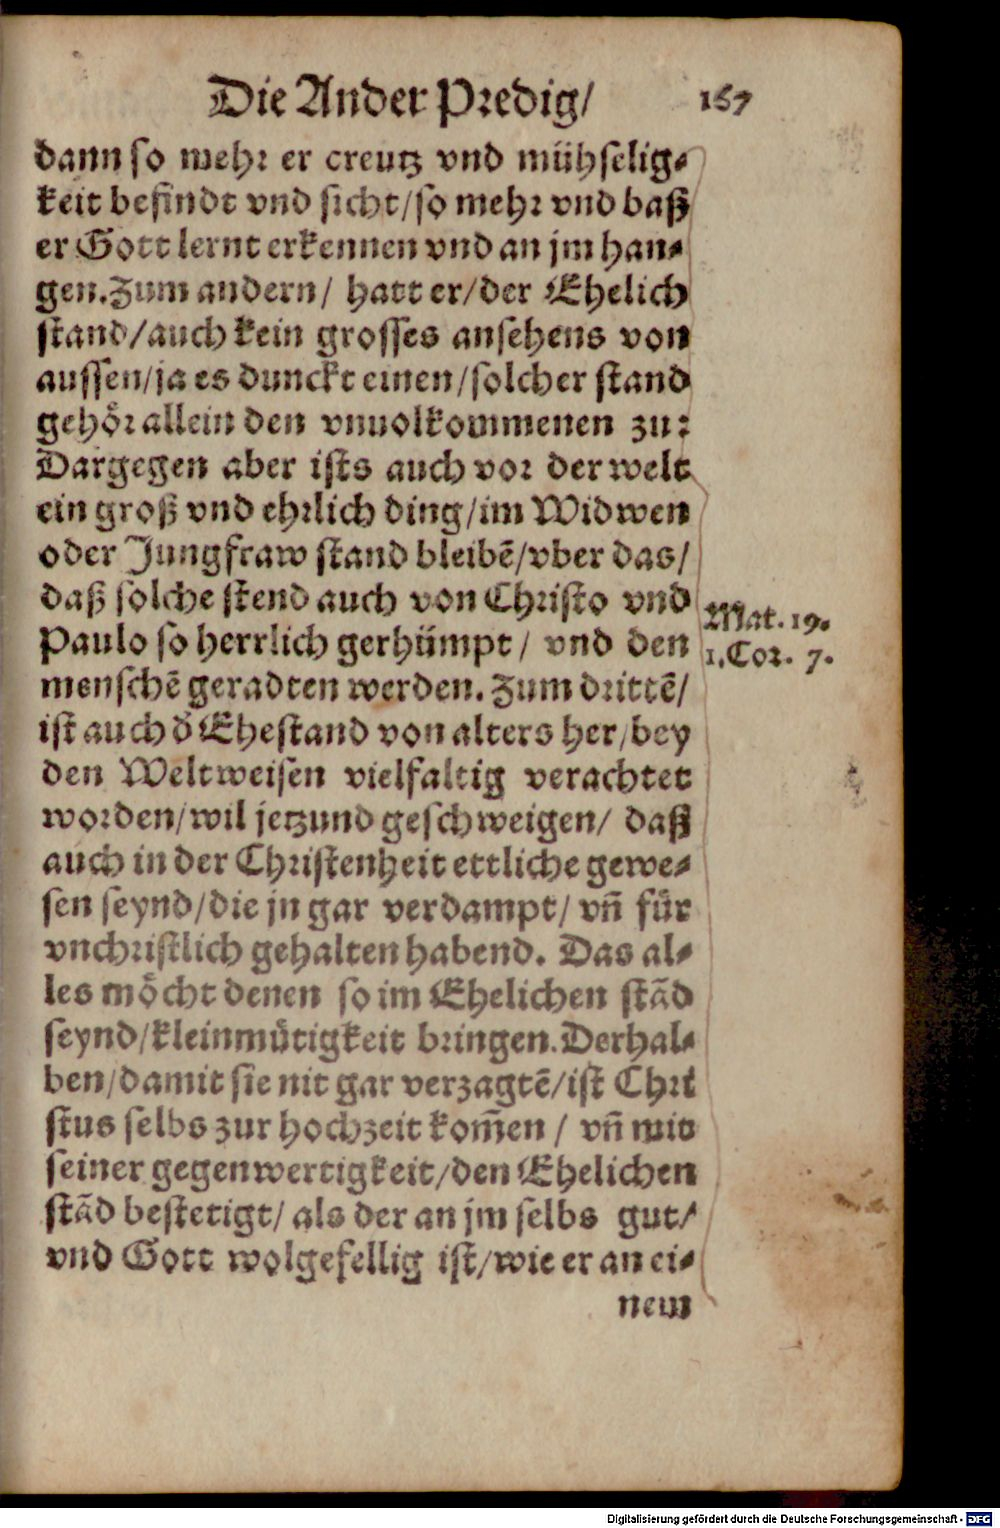 Die Ander Predig/ 167
dann so mehr er creutz vnd mühselig-
keit befindt vnd sicht/so mehr vnd baß
er Gott lernt erkennen vnd an jm han-
gen. Zum andern/ hatt er/der Ehelich
stand/auch kein grosses ansehens von
aussen/ja es dunckt einen/solcher stand
gehoͤr allein den vnuolkommenen zu:
Dargegen aber ists auch vor der welt
ein groß vnd ehrlich ding/im Widwen
oder Jungfraw stand bleibẽ/vber das/
daß solche stend auch von Christo vnd
Paulo so herrlich gerhümpt/ vnd den
menschẽ geradten werden. Zum drittẽ/
ist auch d̕ Ehestand von alters her/bey
den Weltweisen vielfaltig verachtet
worden/wil jetzund geschweigen/ daß
auch in der Christenheit ettliche gewe-
sen seynd/die jn gar verdampt/ vñ für
vnchristlich gehalten habend. Das al-
les moͤcht denen so im Ehelichen stãd
seynd/kleinmuͤtigkeit bringen. Derhal-
ben/damit sie nit gar verzagtẽ/ist Chri
stus selbs zur hochzeit kom̃en/ vñ mit
seiner gegenwertigkeit/den Ehelichen
stãd bestetigt/ als der an jm selbs gut/
vnd Gott wolgefellig ist/wie er an ei-
nem
Mat. 19.
1. Cor. 7.
Digitalisierung gefördert durch die Deutsche Forschungsgemeinschaft - DFG